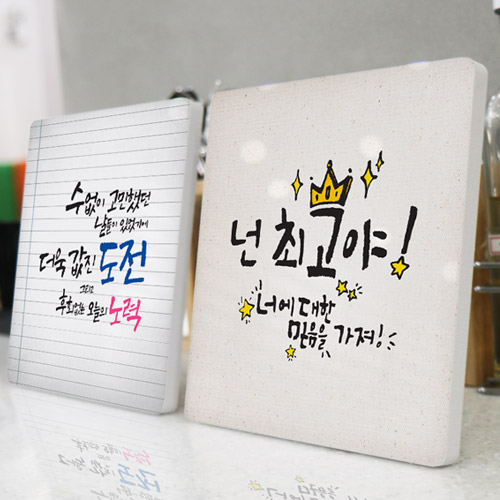 수없이 고민했던
날들이 있었기에
더욱 값진 도전
그리고
후회없는 오늘의 노력
넌 최고야!
너에 대한
믿음을 가져!